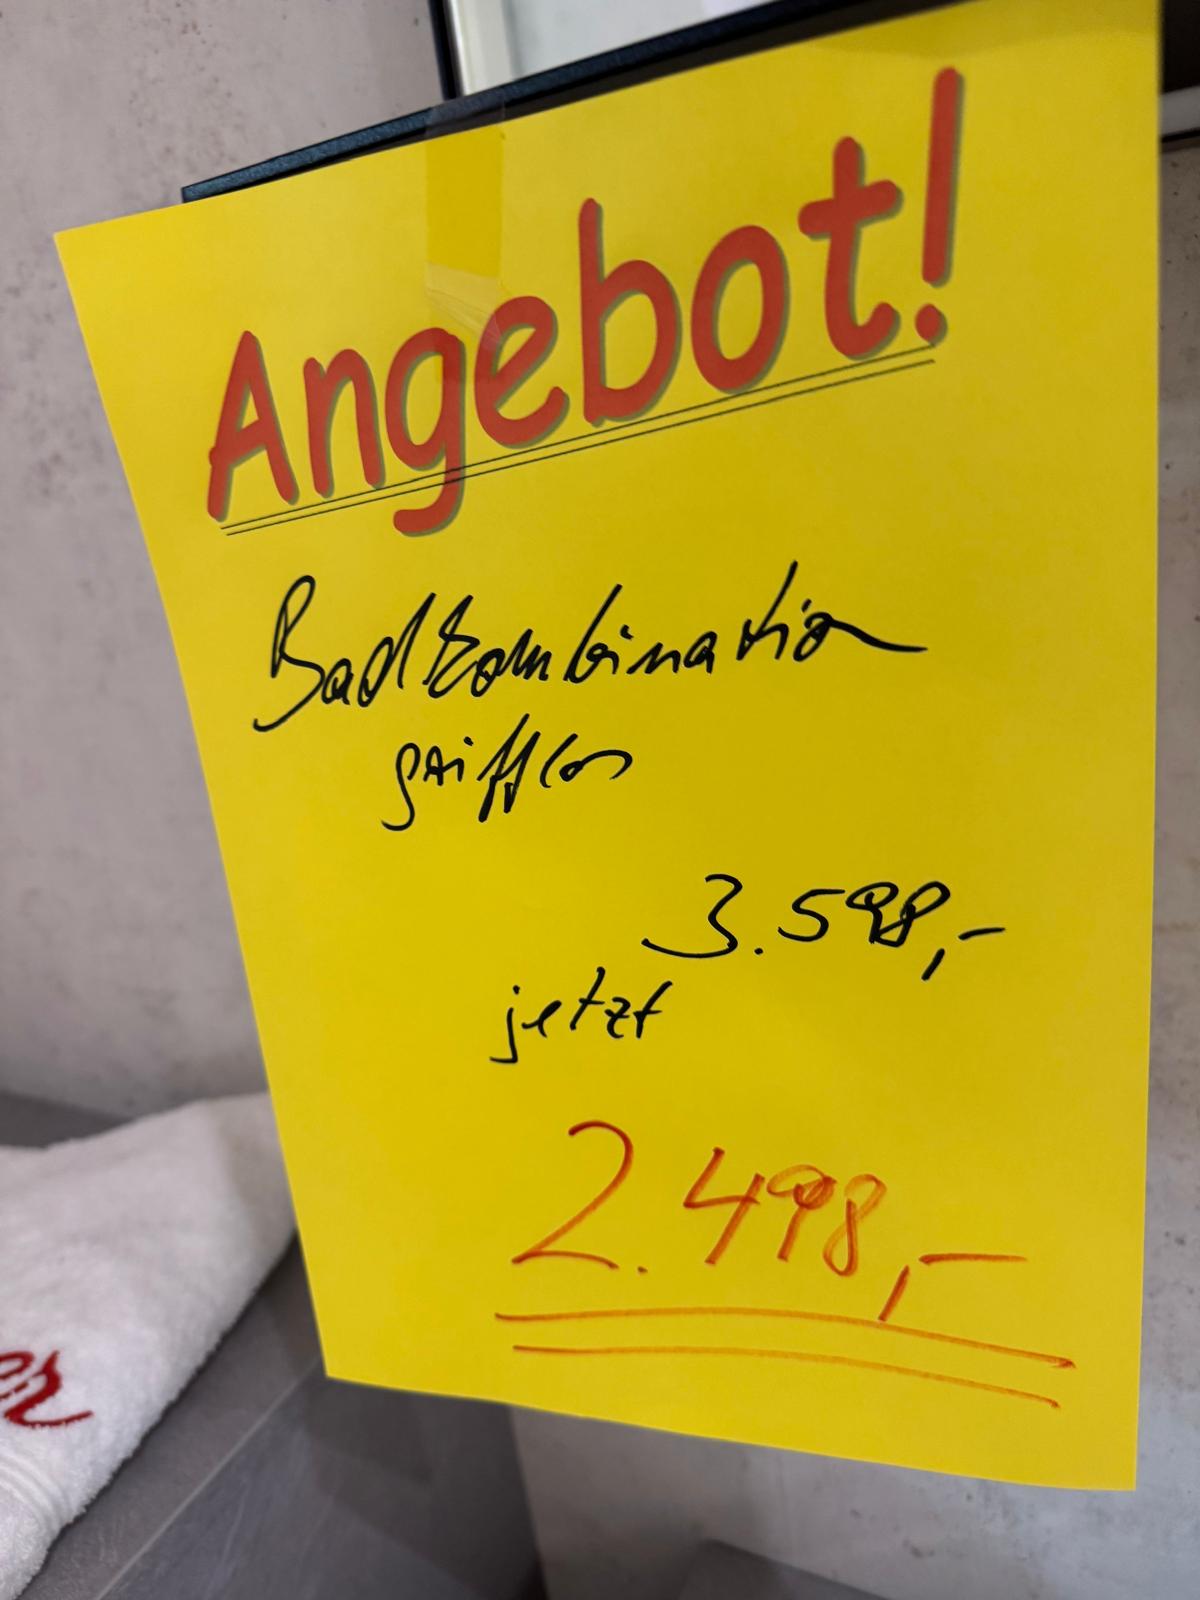 Angebot!
Badkombination
grifflos
3.598,-
jetzt
2.498,-